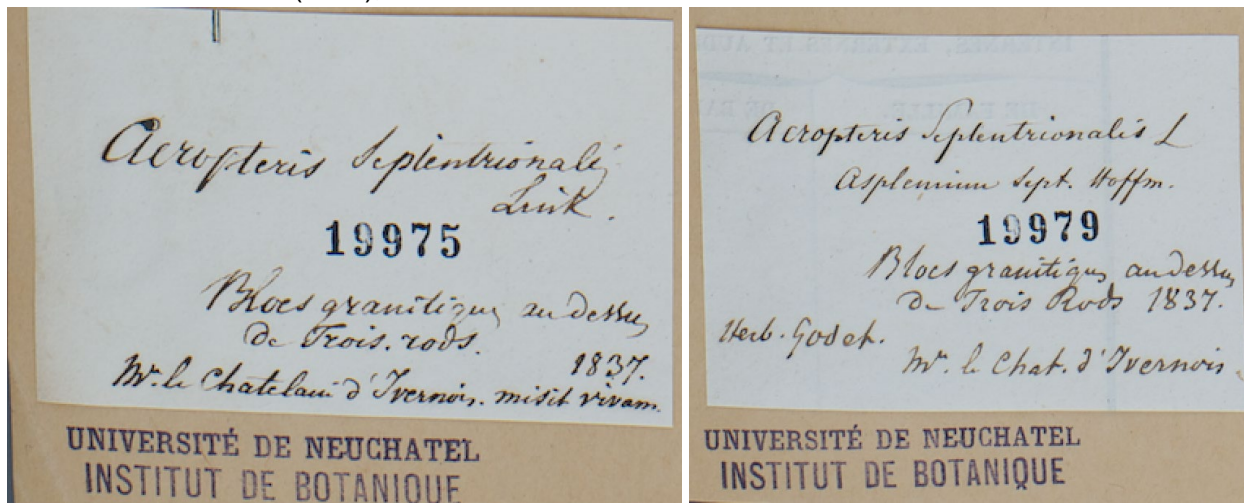 Acropteris Septentrionalis
Link.
19975
Blocs granitiques au dessus
de Trois. rods.
1837.
Mr. le Chatelain d'Ivernois. misit vivam.
UNIVERSITÉ DE NEUCHATEL
INSTITUT DE BOTANIQUE
INTERNES, EXTERNES ET
Acropteris Septentrionalis L
Asplenium Sept. Hoffm.
19979
Blocs granitiques au dessus
de Trois Rods 1837.
Herb. Godet.
Mr. le Chat. d'Ivernois
UNIVERSITÉ DE NEUCHATEL
INSTITUT DE BOTANIQUE